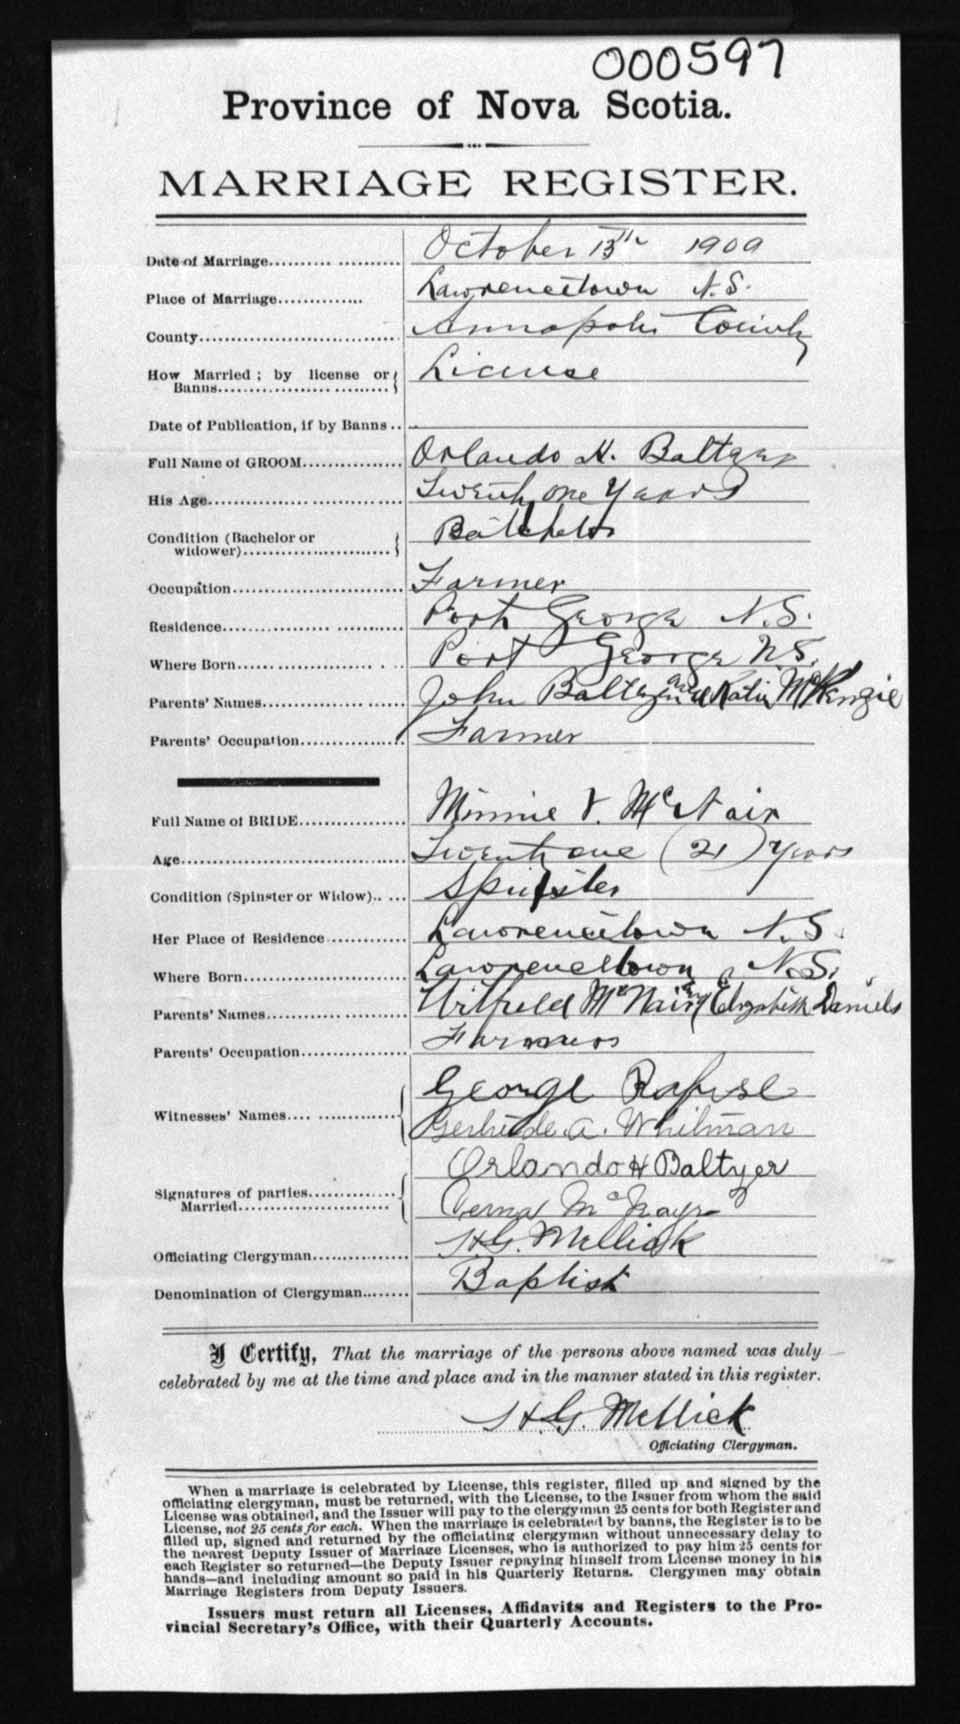 000597
Province of Nova Scotia.
MARRIAGE REGISTER.
Date of Marriage.......... ........... October 13th 1909
Place of Marriage.............. Lawrencetown N.S.
County................................ Annapolis County
How Married ; by license or License
Banns....................................
Date of Publication, if by Banns ..
Full Name of GROOM................ Orlando H. Baltzer
His Age................................ Twenty one Years
Condition (Bachelor or Batchelor
widower)..........................
Occupation............................ Farmer
Residence.............................. Port George N.S.
Where Born............................ Port George N.S.
Parents' Names........................ John Baltzer and Katie McKenzie
Parents' Occupation.................. Farmer
Full Name of BRIDE.................. Minnie V. McNair
Age.................................... Twenty one (21) Years
Condition (Spinster or Widow).. ... Spinster
Her Place of Residence ............. Lawrencetown N.S.
Where Born............................ Lawrencetown N.S.
Parents' Names........................ Wilfield McNair Elizabeth Daniels
Parents' Occupation.................. Farmers
George Rafuse
Witnesses' Names.... ..............
Gertrude A. Whitman
Orlando H Baltzer
Signatures of parties..............
Married..........................
Verna McNayr
Officiating Clergyman................ H.G. Mellick
Denomination of Clergyman........ Baptist
I Certify, That the marriage of the persons above named was duly
celebrated by me at the time and place and in the manner stated in this register.
H.G. Mellick
Officiating Clergyman.
When a marriage is celebrated by License, this register, filled up and signed by the
officiating clergyman, must be returned, with the License, to the Issuer from whom the said
License was obtained, and the Issuer will pay to the clergyman 25 cents for both Register and
License, not 25 cents for each. When the marriage is celebrated by banns, the Register is to be
filled up, signed and returned by the officiating clergyman without unnecessary delay to
the nearest Deputy Issuer of Marriage Licenses, who is authorized to pay him 25 cents for
each Register so returned—the Deputy Issuer repaying himself from License money in his
hands—and including amount so paid in his Quarterly Returns. Clergymen may obtain
Marriage Registers from Deputy Issuers.
Issuers must return all Licenses, Affidavits and Registers to the Pro-
vincial Secretary's Office, with their Quarterly Accounts.